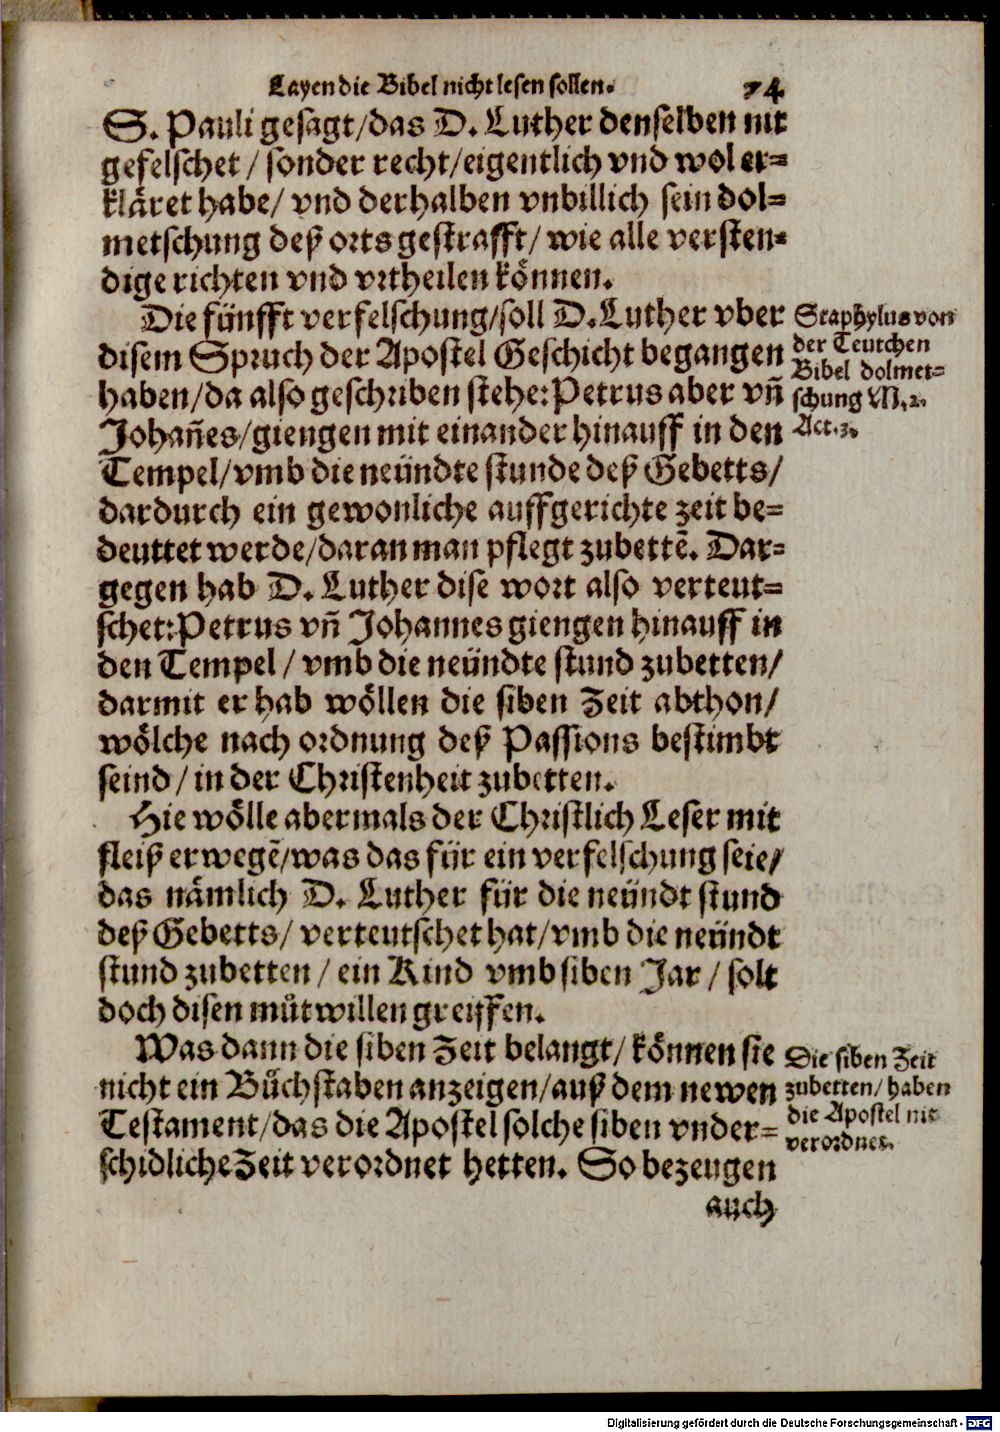 Layen die Bibel nicht lesen sollen. 74
S. Pauli gesagt/das D. Luther denselben nit
gefelschet / sonder recht/eigentlich vnd wol er=
kläret habe/ vnd derhalben vnbillich sein dol=
metschung deß orts gestrafft/ wie alle versten=
dige richten vnd vrtheilen können.
Die fünfft verfelschung/soll D. Luther vber
disem Spruch der Apostel Geschicht begangen
haben/da also geschriben stehe: Petrus aber vñ
Johañes/giengen mit einander hinauff in den
Tempel/vmb die neündte stunde deß Gebetts/
dardurch ein gewonliche auffgerichte zeit be=
deuttet werde/daran man pflegt zubettẽ. Dar=
gegen hab D. Luther dise wort also verteut=
schet: Petrus vñ Johannes giengen hinauff in
den Tempel / vmb die neündte stund zubetten/
darmit er hab wöllen die siben Zeit abthon/
wölche nach ordnung deß Passions bestimbt
seind / in der Christenheit zubetten.
Hie wölle abermals der Christlich Leser mit
fleiß erwegẽ/was das für ein verfelschung seie/
das nämlich D. Luther für die neündt stund
deß Gebetts/ verteutschet hat/vmb die neündt
stund zubetten / ein Kind vmb siben Jar / solt
doch disen můtwillen greiffen.
Was dann die siben Zeit belangt/ können sie
nicht ein Bůchstaben anzeigen/auß dem newen
Testament/das die Apostel solche siben vnder=
schidliche Zeit verordnet hetten. So bezeugen
auch
Staphylus von
der Teutchen
Bibel dolmet=
schung M. 2.
Act. 3.
Die siben Zeit
zubetten/ haben
die Apostel nit
verordnet.
Digitalisierung gefördert durch die Deutsche Forschungsgemeinschaft - DFG